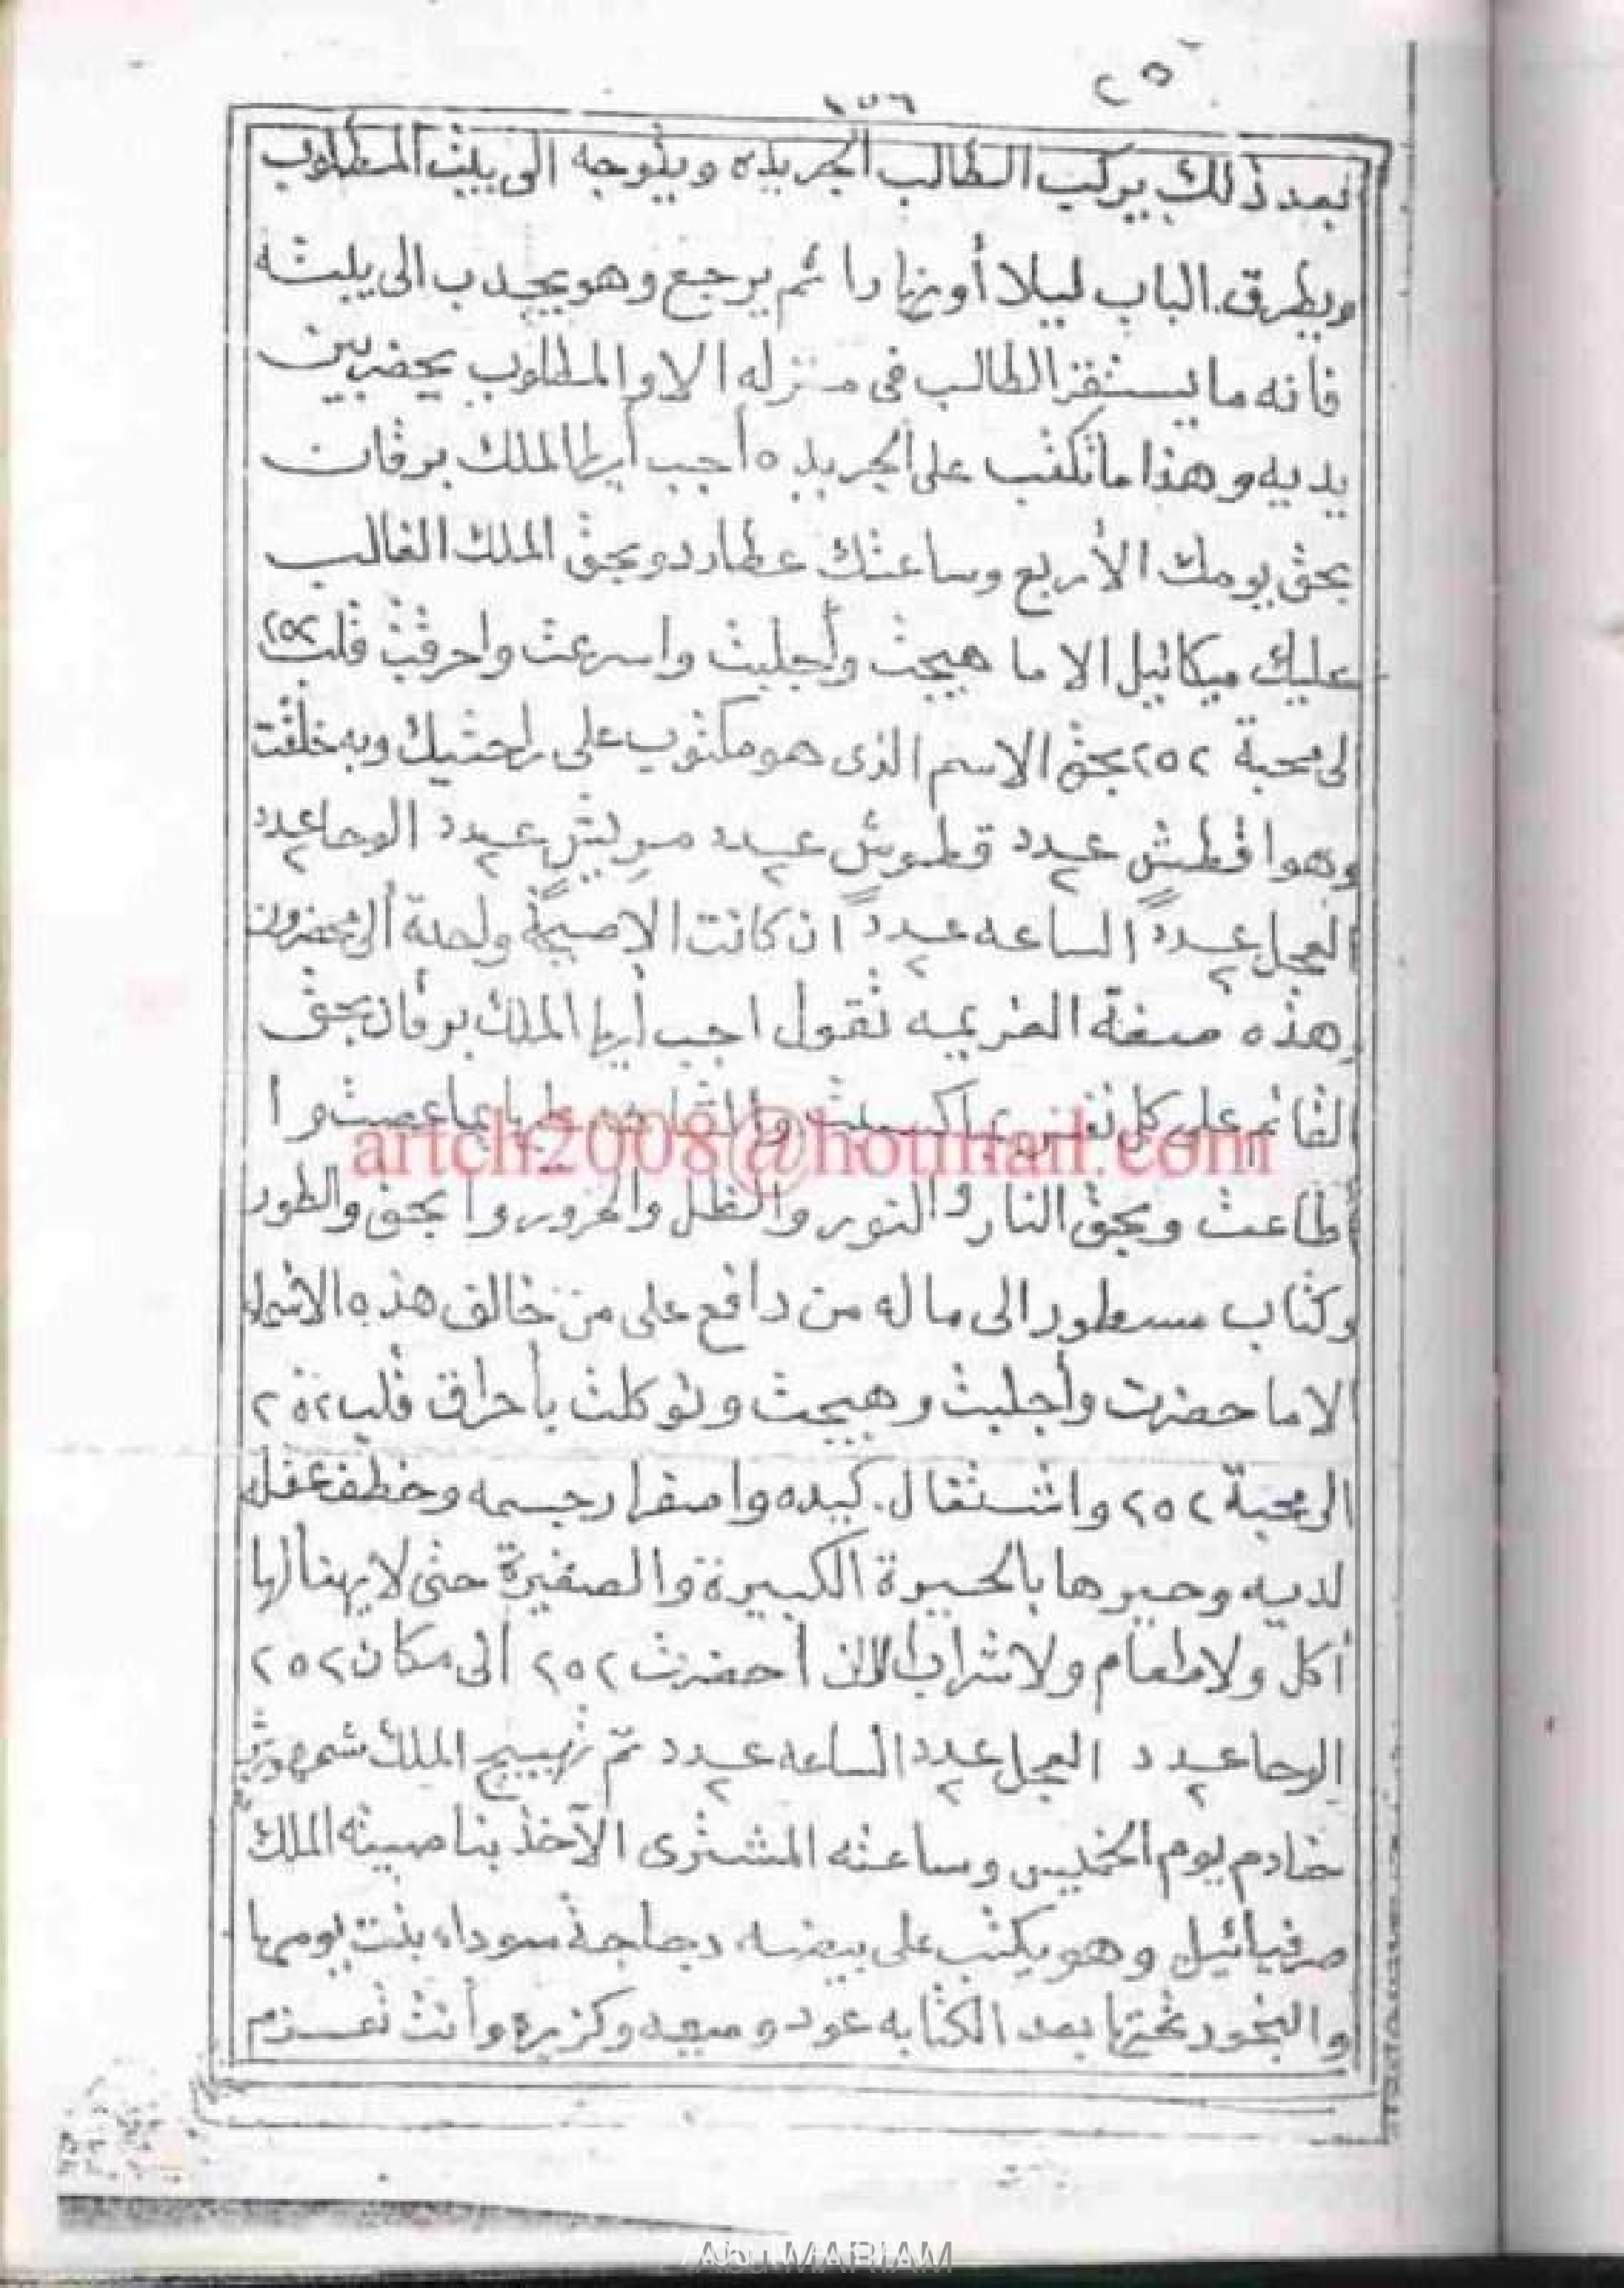 ٢٥
١٥٦
بعد ذلك يركب الطالب الجريده ويتوجه الى بيت المطلوب
ويطرق الباب ليلا أو نهارا ثم يرجع وهو يجدب الى بيته
فأنه ما يستقر الطالب فى منزله الا والمطلوب يحضر بين
يديه وهذا ما تكتب على الجريده أجب أيها الملك برقان
بحق يومك الأربع وساعتك عطارد وبحق الملك الغالب
عليك ميكائيل الا ما هيجت وأجلبت واسرعت واحرقت قلب ٢٥٢
لى محبة ٢٥٢ بحق الاسم الذى هو مكتوب على راحتيك وبه خلقت
وهوا قطش عدد ٢ قطوش عدد ٢ مريش عدد ٢ الوحا عدد ٢
لعجل عدد ٢ الساعه عدد ٢ ان كانت الا صيحة واحدة ألى محضرون
هذه صفة العزيمه تقول اجب أيها الملك برقان بحق
القائم على كل نفس بما كسبت وا
artch2008@hotmail.com
طاعت وبحق النار والنور والظل والحرور وا بحق والطور
وكتاب مسطور الى ماله من دافع على من خالق هذه الأسماء
لا ما حضرت وأجلبت وهيجت وتوكلت بأحراق قلب ٢٥٢
الى محبة ٢٥٢ واشتقال كبده واصفرا رجسمه وخطف عقله
لديه وحيرها بالحيرة الكبيرة والصغيرة حتى لا يهنأ لها
أكل ولا طعام ولا شراب أحضرت ٢٥٢ ألى مكان ٢٥٢
الوحا عدد ٢ العجل عدد ٢ الساعه عدد ٢ تم تهييج الملك شمهورش
خادم يوم الخميس وساعته المشترى الآخذ بناصيته الملك
صرفيائيل وهو يكتب على بيضه دجاجة سوداء بنت يومها
والبخور تحتها بعد الكتابه عود وميعه وكزبره وأنت تعزم
Abu MARIAM